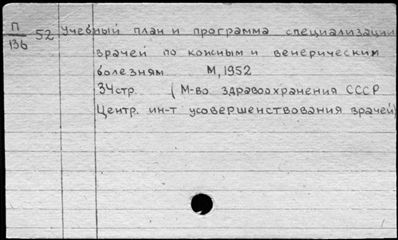 П
136 52 Учебный план и программа специализации
врачей по кожным и венерическим
болезням. М, 1952
34стр. (М-во здравоохранения СССР
Центр. ин-т усовершенствования врачей)